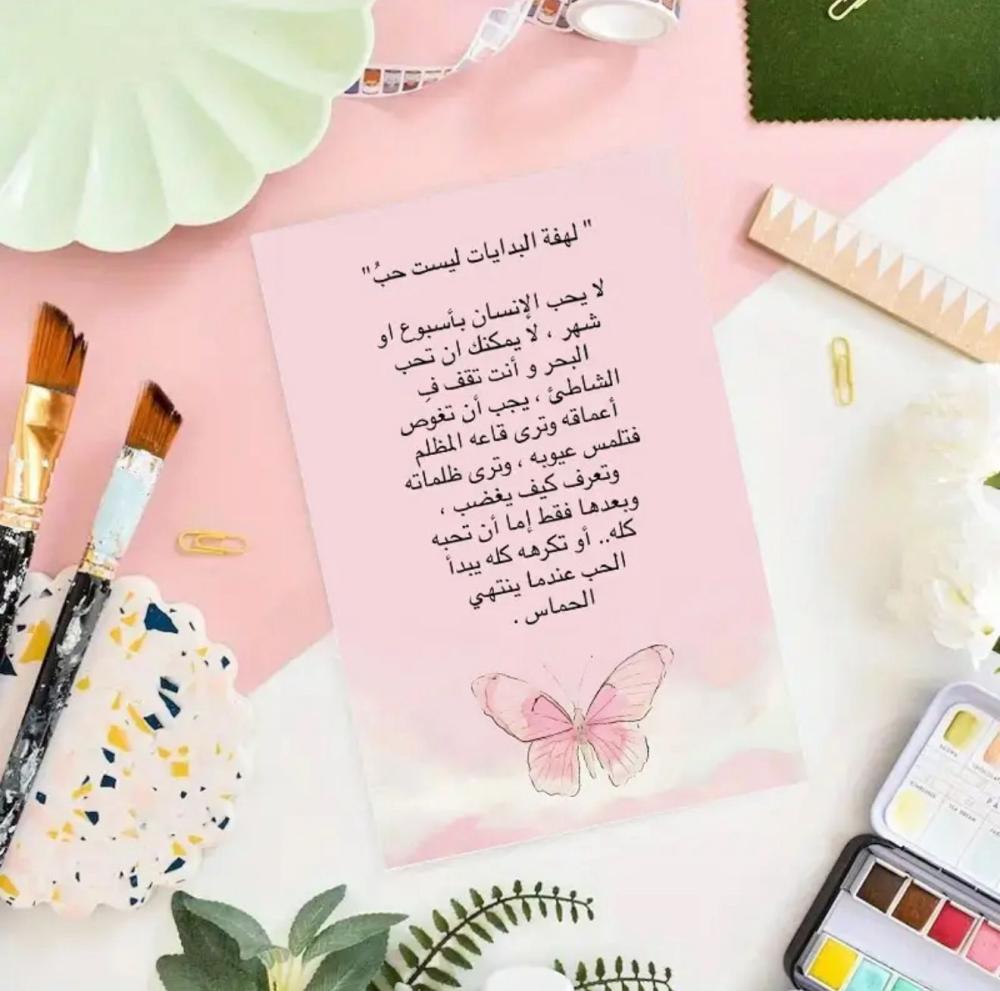 " لهفة البدايات ليست حبُ"
لا يحب الإنسان بأسبوع او
شهر ، لا يمكنك ان تحب
البحر و أنت تقف فِ
الشاطئ ، يجب أن تغوص
أعماقه وترى قاعه المظلم
فتلمس عيوبه ، وترى ظلماته
وتعرف كيف يغضب ،
وبعدها فقط إما أن تحبه
كله.. أو تكرهه كله يبدأ
الحب عندما ينتهي
الحماس .